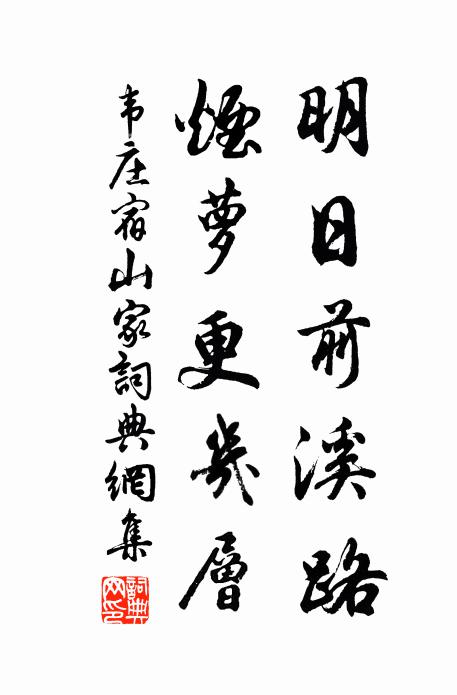 明日前溪路
煙萝更幾層
韦庄宿山家詞典網集
詞典网印